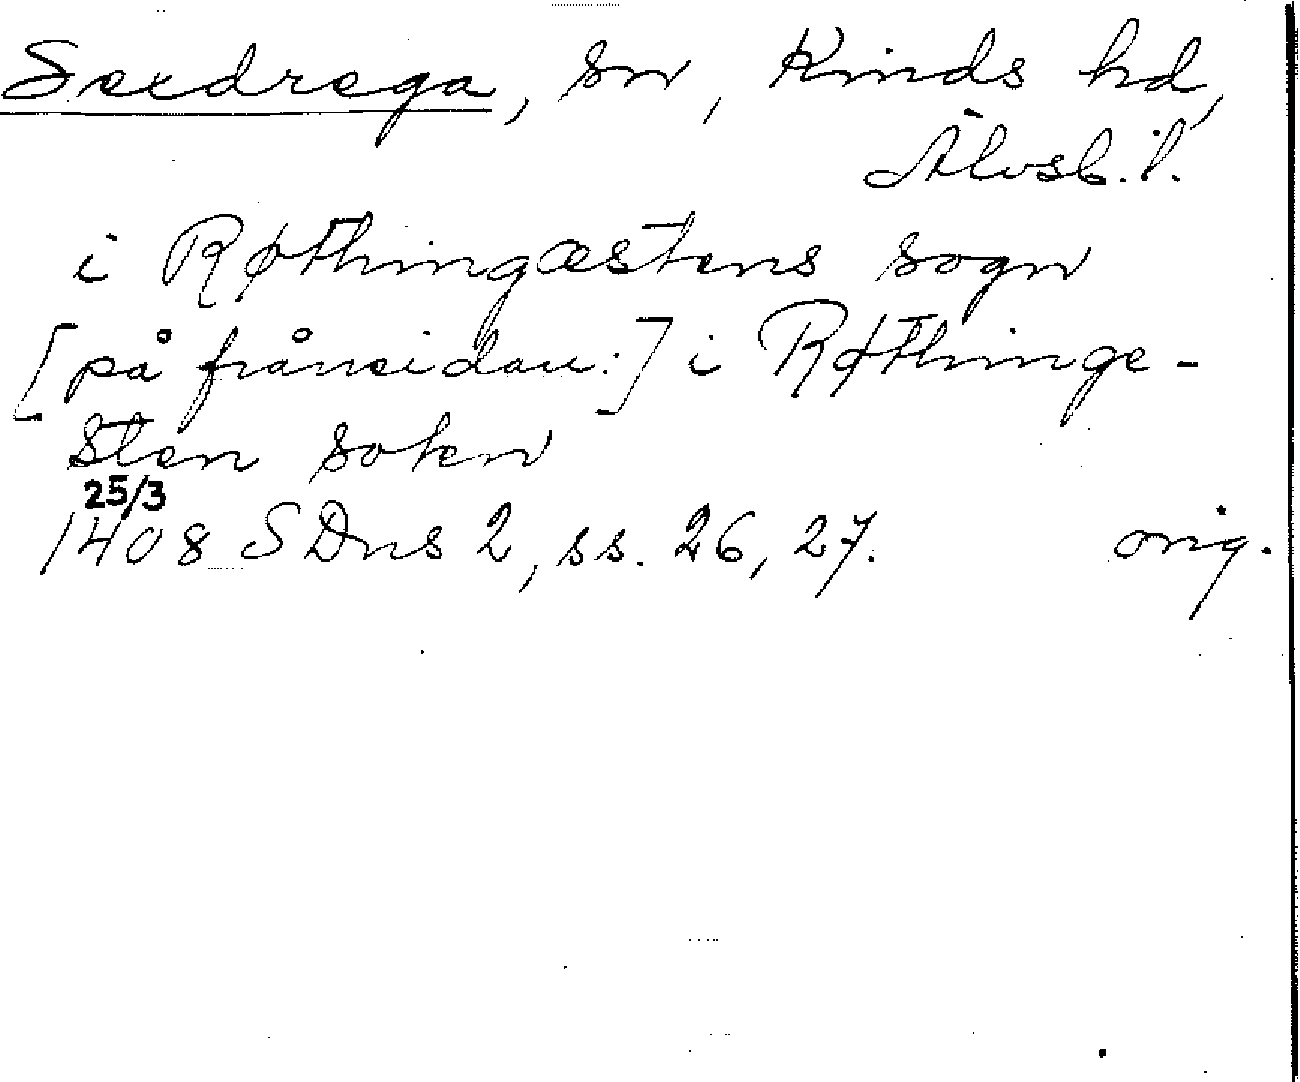 Sexdrega, sn, Kinds hd,
Älvsb. l.
i Røthingæstens sogn
[på frånsidan:] i Røthinge-
sten sokn
25/3
1408 SDns 2, ss. 26, 27. orig.